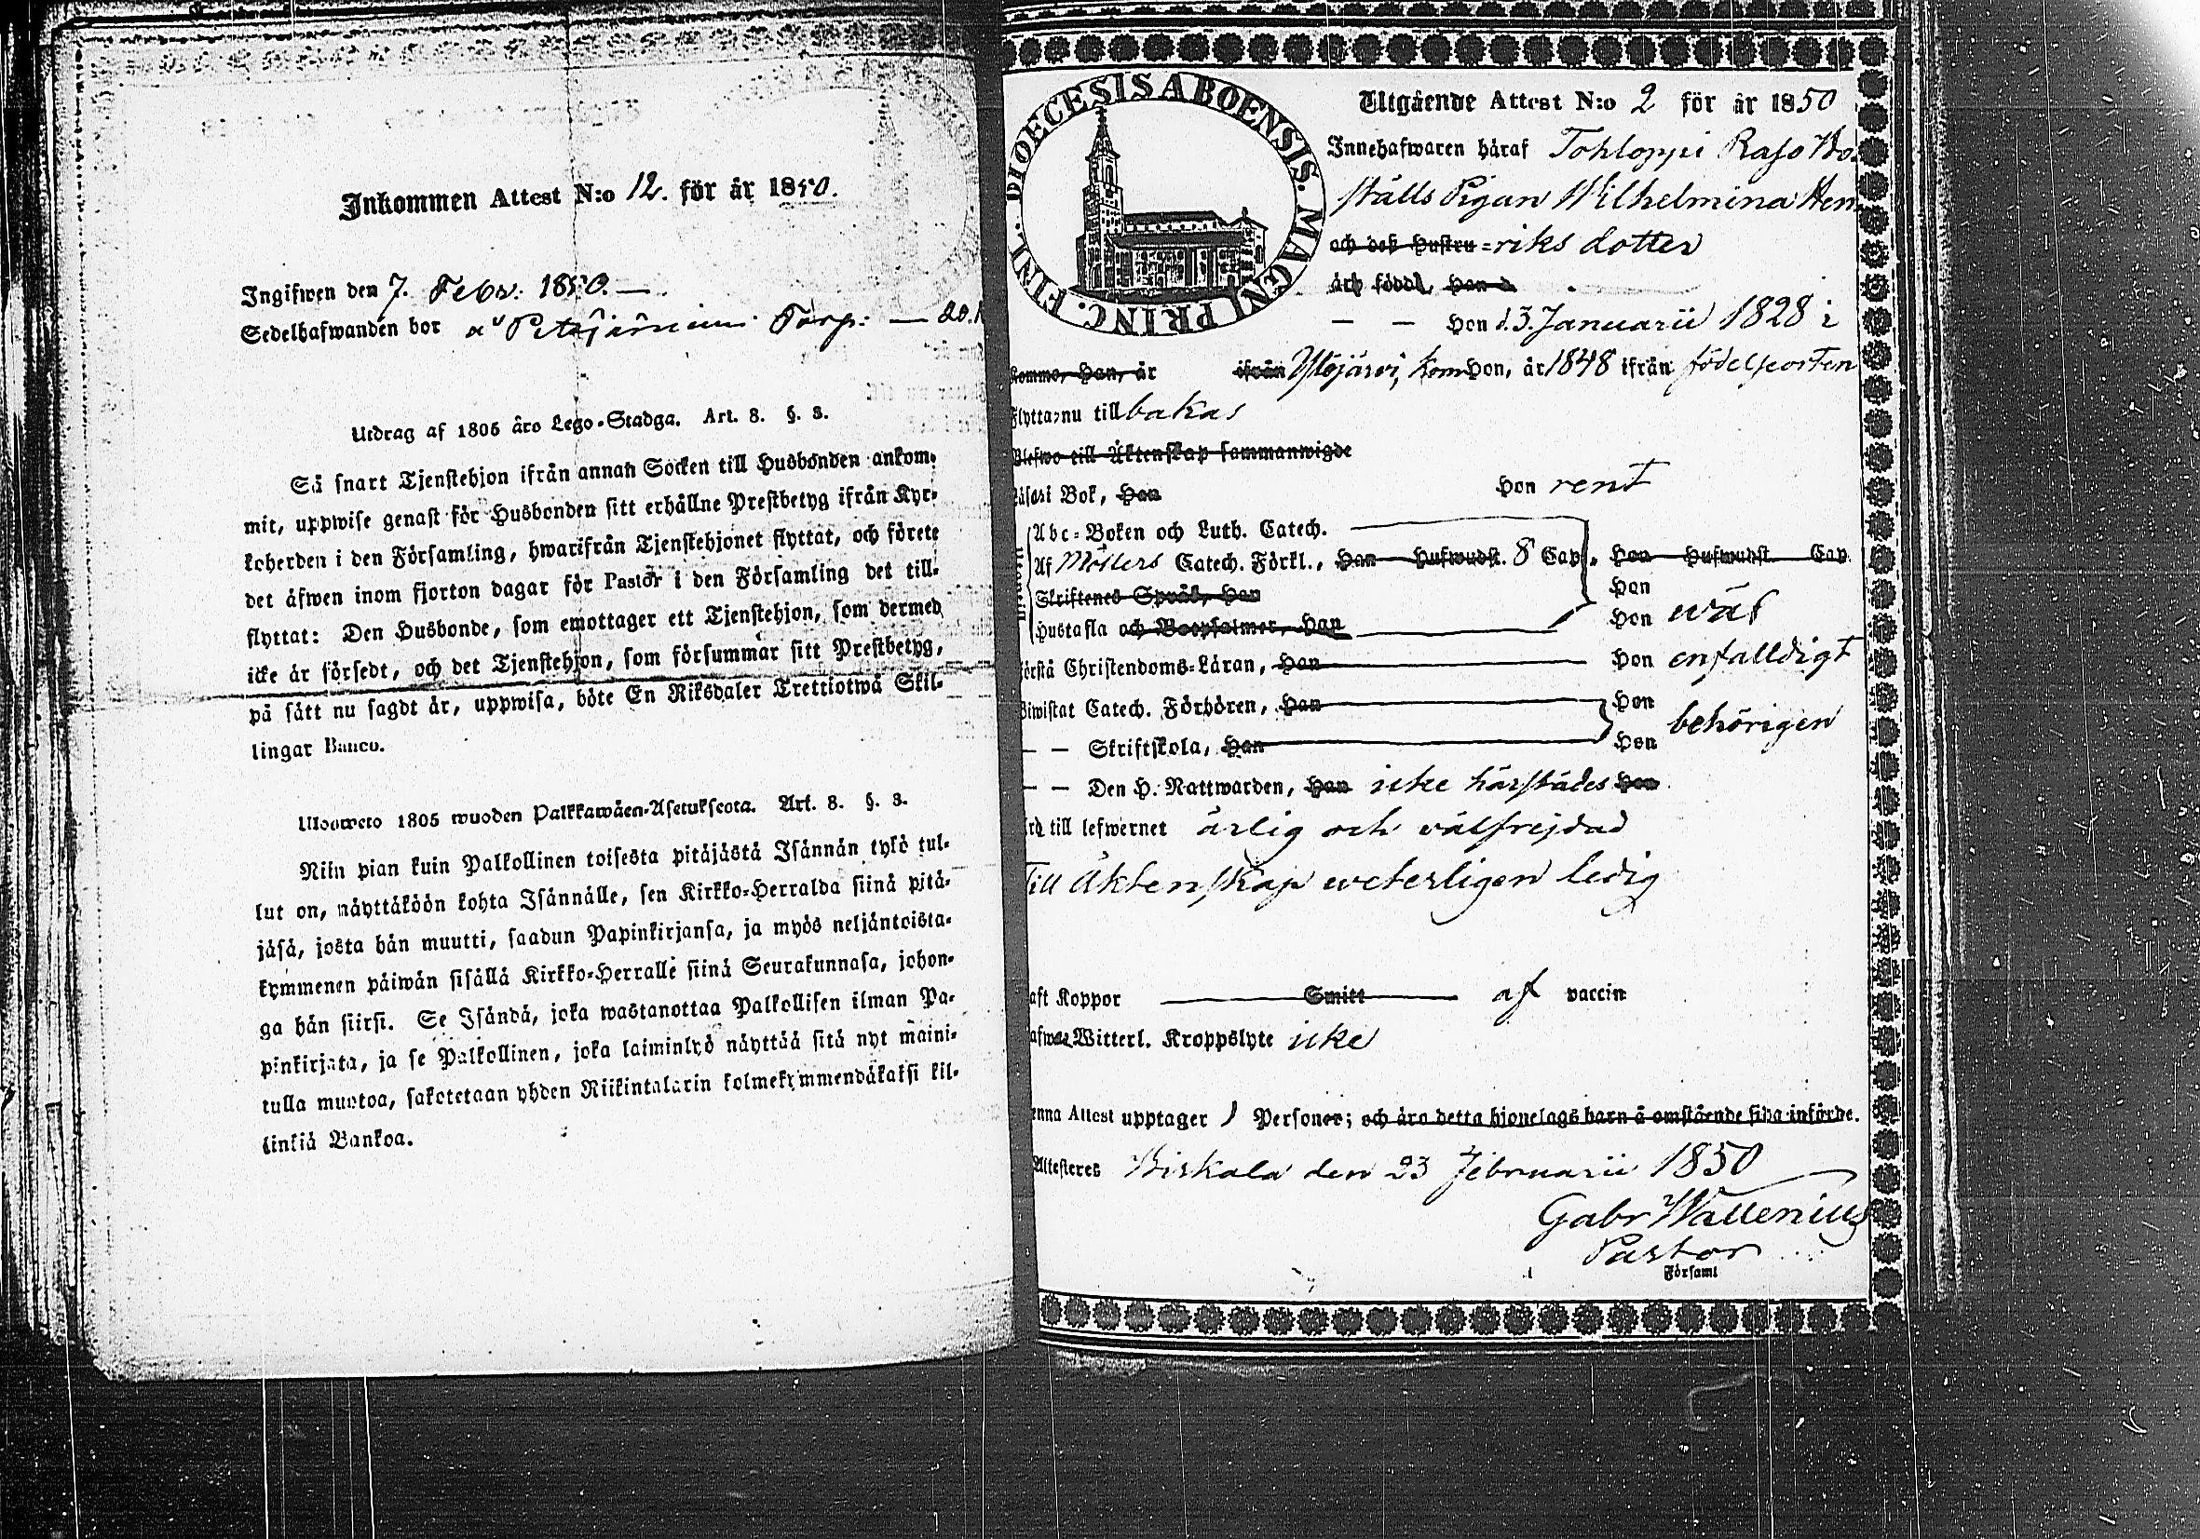 Inkommen Attest N:o 12. för år 1850.
Ingifwen den 7. Febr: 1850. —
Sedelhafwanden bor Torp: —
Utdrag af 1805 års Lego-Stadga. Art. 8. §. 3.
Så snart Tjenstehjon ifrån annan Socken till Husbonden ankom-
mit, uppwise genast för Husbonden sitt erhållne Prestbetyg ifrån Kyr-
koherden i den Församling, hwarifrån Tjenstehjonet flyttat, och förete
det äfwen inom fjorton dagar för Pastor i den Församling det till-
flyttat: Den Husbonde, som emottager ett Tjenstehjon, som dermed
icke är försedt, och det Tjenstehjon, som försummar sitt Prestbetyg,
på sätt nu sagdt är, uppwisa, böte En Riksdaler Trettiotwå Skil-
lingar Banco.
Ulosweto 1805 wuoden Palkkawäen-Asetuksesta. Art. 8. §. 3.
Niin pian kuin Palkollinen toisesta pitäjästä Isännän tykö tul-
lut on, näyttäköön kohta Isännälle, sen Kirkko-Herralda siinä pitä-
jäsä, josta hän muutti, saadun Papinkirjansa, ja myös neljäntoista-
kymmenen päiwän sisällä Kirkko-Herralle siinä Seurakunnasa, johon-
ga hän siirsi. Se Isändä, joka wastanottaa Palkollisen ilman Pa-
pinkirjata, ja se Palkollinen, joka laiminlyö näyttää sitä nyt maini-
tulla muotoa, sakotetaan yhden Riikintalarin kolmekymmendäkaksi kil-
linkiä Bankoa.
DIOECESIS ABOENSIS. MAGNI PRINC. FINL.
Utgående Attest N:o 2 för år 1850
Innehafwaren häraf Tohloppi Raso Bo-
ställs Pigan Wilhelmina Hen-
och dess Hustru =riks dotter
äro födde, Han d.
— — Hon d. 3. Januarii 1828 i
komme, Han, år ifrån Ylöjärvi, kom Hon, år 1848 ifrån födelseorten
flytta, nu till bakas
Blefwo till Äktenskap sammanwigde
Läser i Bok, Han Hon rent
Abc-Boken och Luth. Catech.
Af Möllers Catech. Förkl., Han Hufwudst. 8 Cap., Hon Hufwudst. Cap.
Skriftenes Språk, Han Hon
Hustafla och Botpsalmer, Han Hon wäl
förstå Christendoms-Läran, Han Hon enfalldigt
Biwistat Catech. Förhören, Han Hon behörigen
— — Skriftskola, Han Hon
— — Den H. Nattwarden, Han icke härstädes Hon
till lefwernet ärlig och välfrejdad
Till Äktenskap weterligen ledig
Haft Koppor Smitt af vaccin
Hafwa Witterl. Kroppslyte icke
Denna Attest upptager 1 Personer; och äro detta hjonelags barn å omstående sida införde.
Attesteres Birkala den 23 Februarii 1850
Gabr Wallenius
Pastor
Församl